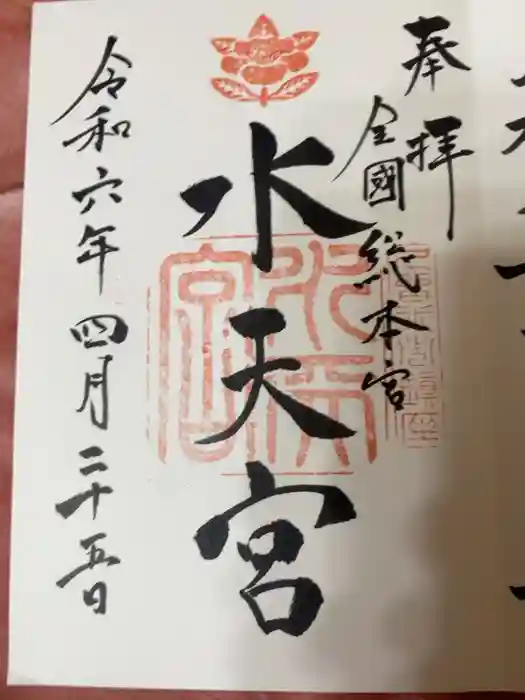 奉拝
全國総本宮
水天宮
令和六年四月二十五日